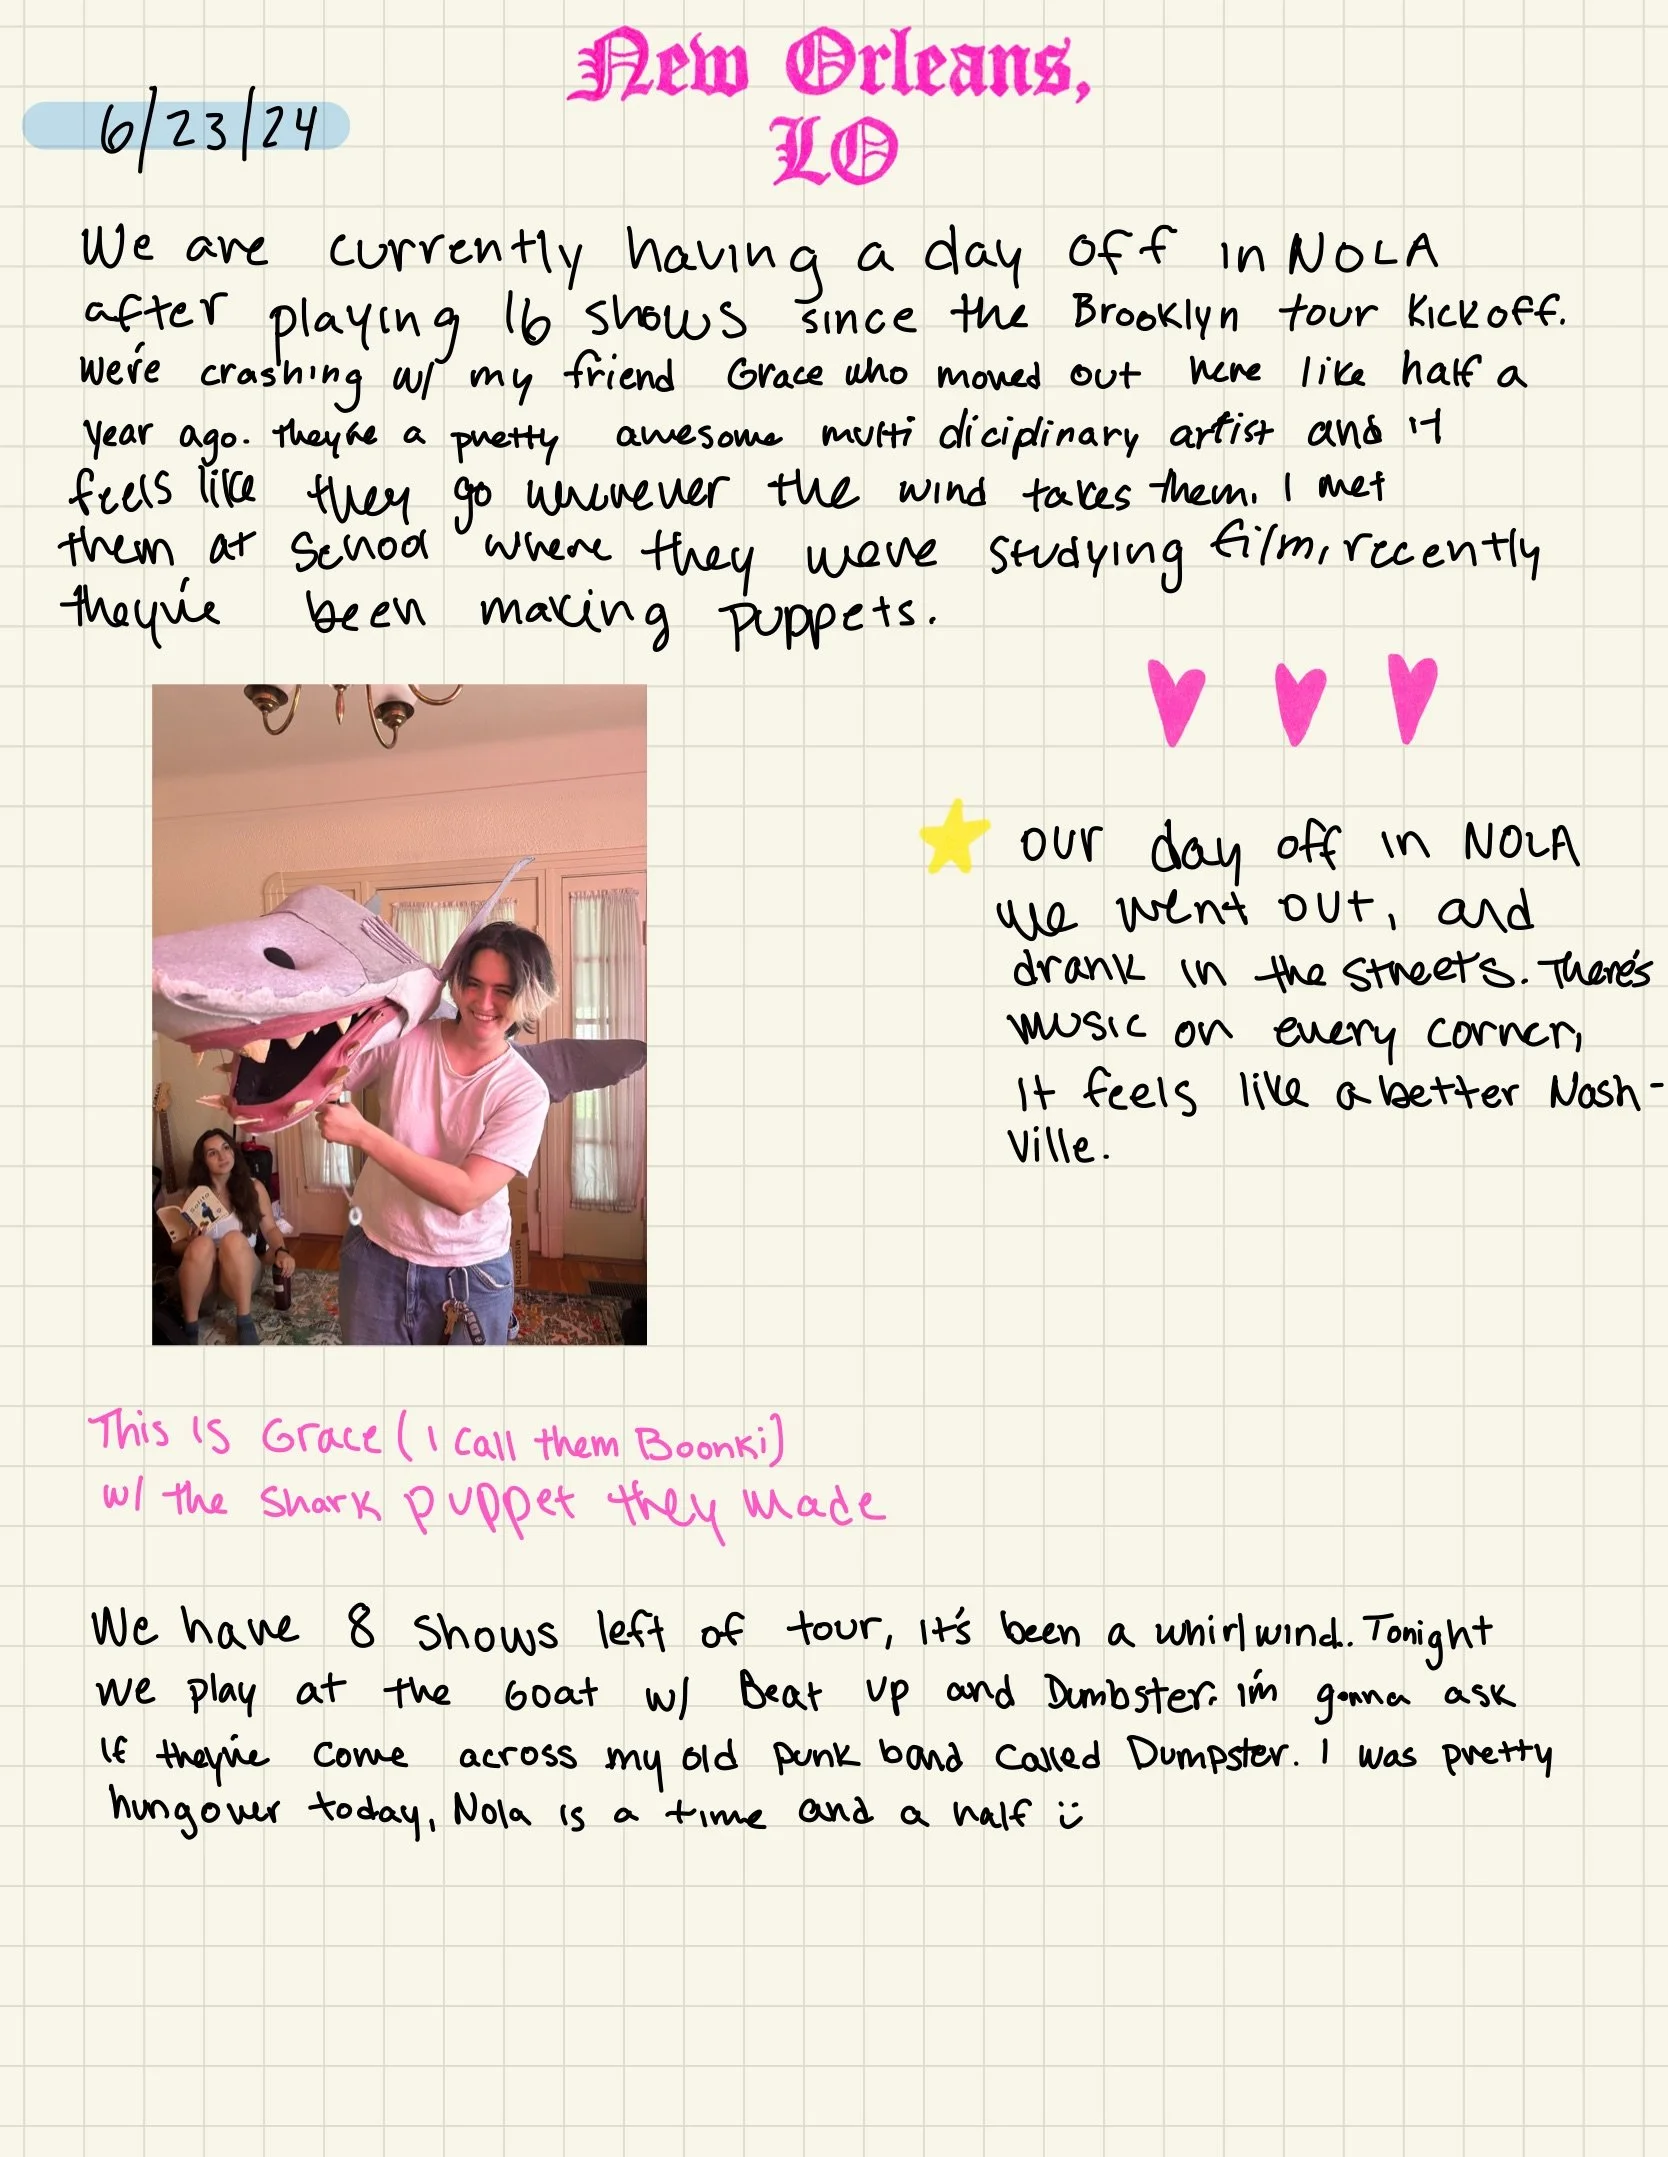 New Orleans,
LO
6/23/24
We are currently having a day off in NOLA
after playing 16 shows since the Brooklyn tour kickoff.
We're crashing w/ my friend Grace who moved out here like half a
year ago. they're a pretty awesome multi diciplinary artist and it
feels like they go wherever the wind takes them. I met
them at school where they were studying film, recently
they've been making puppets.
our day off in NOLA
we went out, and
drank in the streets. There's
music on every corner,
it feels like a better Nash-
ville.
This is Grace (I call them Boonki)
w/ the shark puppet they made
We have 8 shows left of tour, it's been a whirlwind. Tonight
we play at the Goat w/ Beat up and Dumbster. i'm gonna ask
if they've come across my old punk band called Dumpster. I was pretty
hungover today, Nola is a time and a half ü